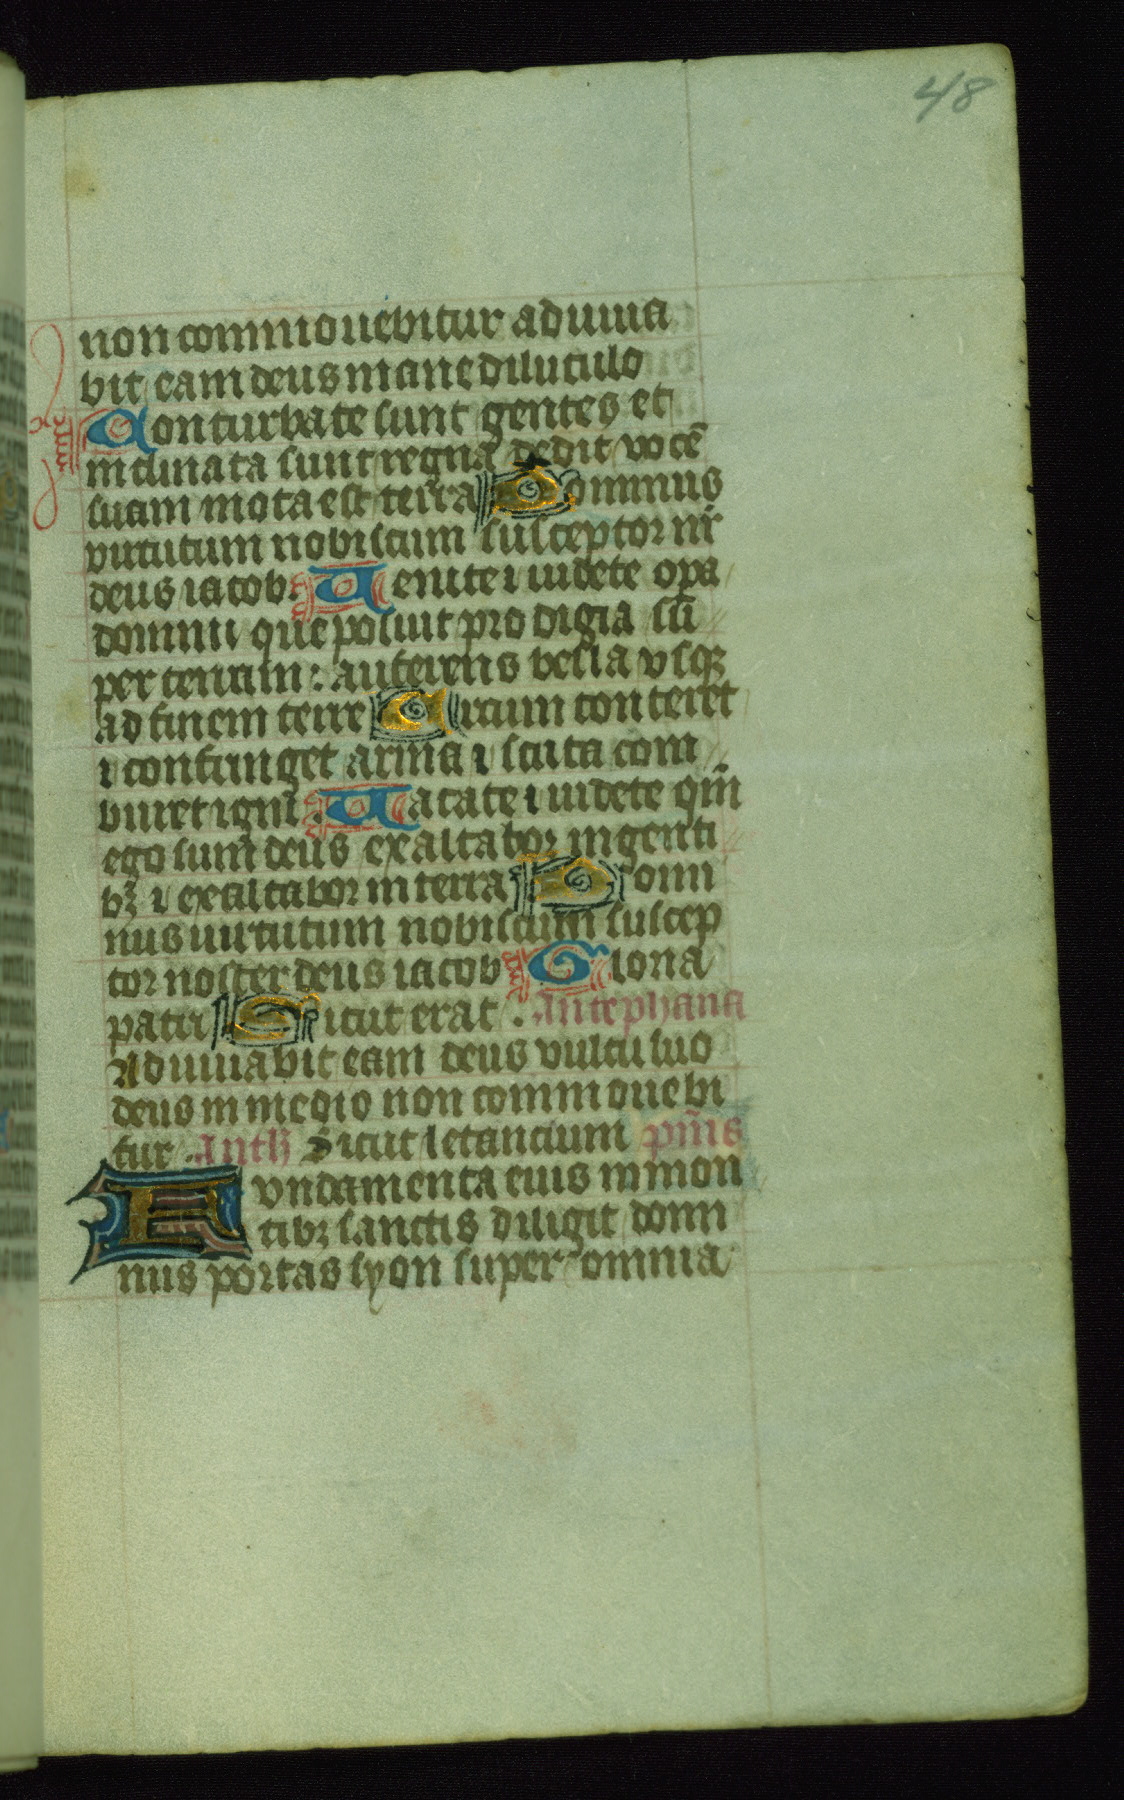 48
non commouebitur adiuua
bit eam deus mane diluculo
Conturbate sunt gentes et
inclinata sunt regna dedit uocē
suam mota est terra Dominus
uirtutum nobiscum susceptor nr̄
deus iacob. Uenite ⁊ uidete opa
domini que posuit prodigia sū
per terram : auferens bella vsqꝫ
ad finem terre Arcum conteret
⁊ confringet arma ⁊ scuta com
buret igni. Uacate ⁊ uidete qm̄
ego sum deus exaltabor in genti
bꝫ ⁊ exaltabor in terra Domi
nus uirtutum nobiscum suscep
tor noster deus iacob Gloria
patri Sicut erat . Antephana
Adiuuabit eam deus vultu suo
deus in medio non commouebi
tur . Anth Sicut letancium ps̄mis
Fvndamenta eius in mon
tibꝫ sanctis diligit domi
nus portas syon super omnia